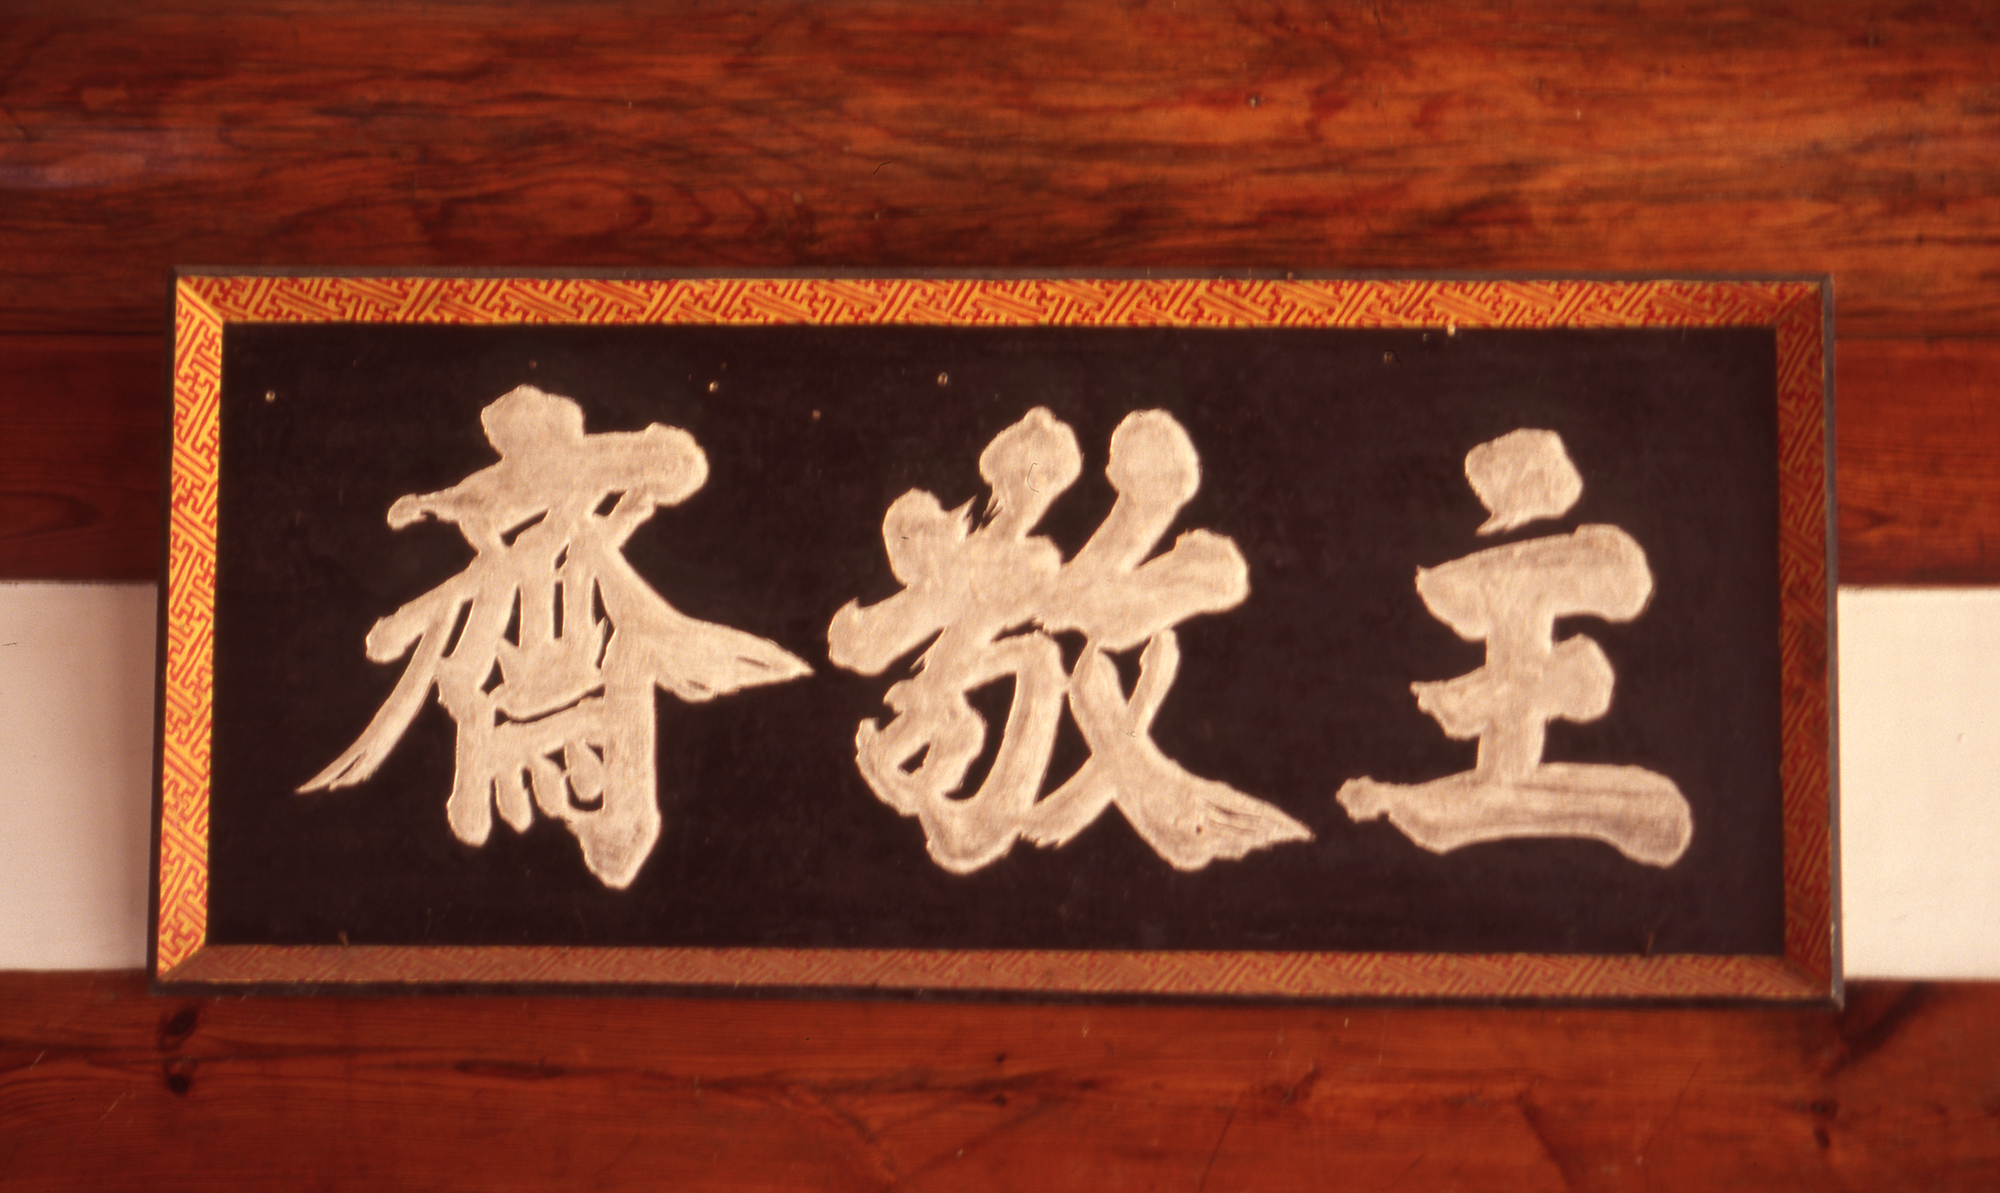 主敬齋